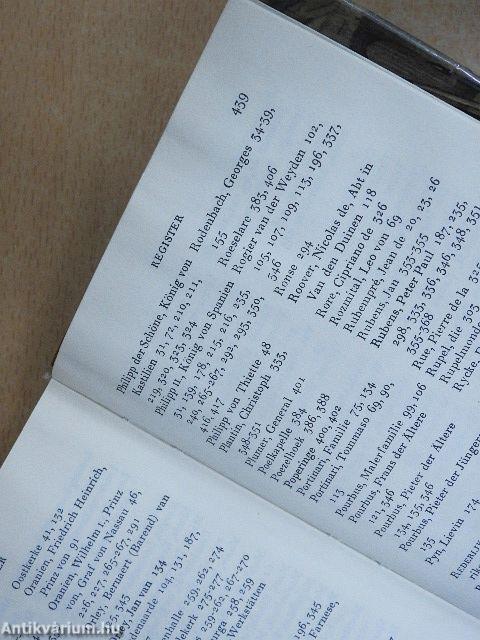 REGISTER 439
Philipp der Schöne, König von
Kastilien 31, 72, 210, 211,
219, 320, 323, 324
Philipp II., König von Spanien
31, 139, 178, 215, 216, 235,
240, 265-267, 292, 295, 350,
416, 417
Philipp von Thiette 48
Plantin, Christoph 333,
348-351
Plumer, General 401
Poelkapelle 384
Poezelhoek 386, 388
Poperinge 400, 402
Portinari, Familie 75, 134
Portinari, Tommaso 69, 90,
113
Pourbus, Malerfamilie 99, 106
Pourbus, Frans der Ältere
121, 346
Pourbus, Pieter der Ältere
134, 135, 346
Pourbus, Pieter der Jüngere
135
Pyn, Lievin 174
Rodenbach, Georges 34-39,
155
Roeselare 383, 406
Rogier van der Weyden 102,
105, 107, 109, 113, 196, 337,
346
Ronse 294
Roover, Nicolas de, Abt in
Van den Duinen 118
Rore, Cipriano de 326
Rozmital, Leo von 69
Rubempré, Jean de 20, 23, 26
Rubens, Jan 353-355
Rubens, Peter Paul 187, 235,
298, 333, 336, 346, 348, 351,
355-368
Rue, Pierre de la 325
Rupel, die 393
Rupelmonde
Rycke,
Oostkerke 41, 132
Oranien, Friedrich Heinrich,
Prinz von 91
Oranien, Wilhelm I., Prinz
von, Graf von Nassau 46,
226, 227, 265-267, 291
Bernaert (Barend) van
345
Jan van 134
104, 131, 187,
259, 262, 274
275-277
259-262, 267-270
258, 259
Werkstätten
196, 345
Antikvárium.hu